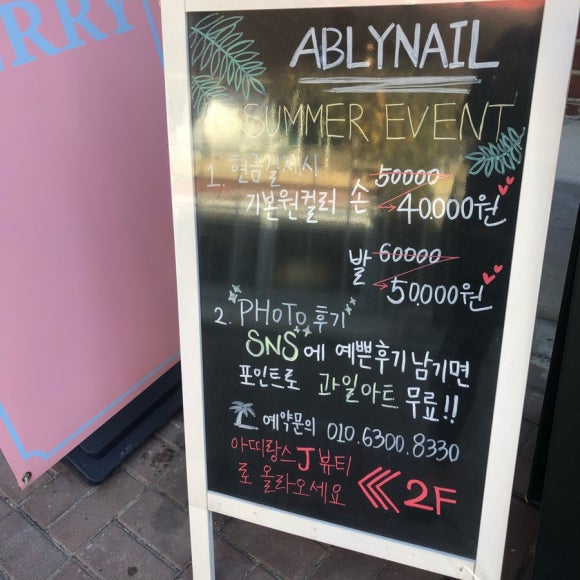 ERRY
ABLYNAIL
SUMMER EVENT
1. 현금결제시
기본원컬러 손 50000
→ 40.000원
발 60000
→ 50.000원
2. PHOTO 후기
SNS에 예쁜후기 남기면
포인트로 과일아트 무료!!
예약문의 010.6300.8330
아띠랑스 J 뷰티
로 올라오세요 <<< 2F